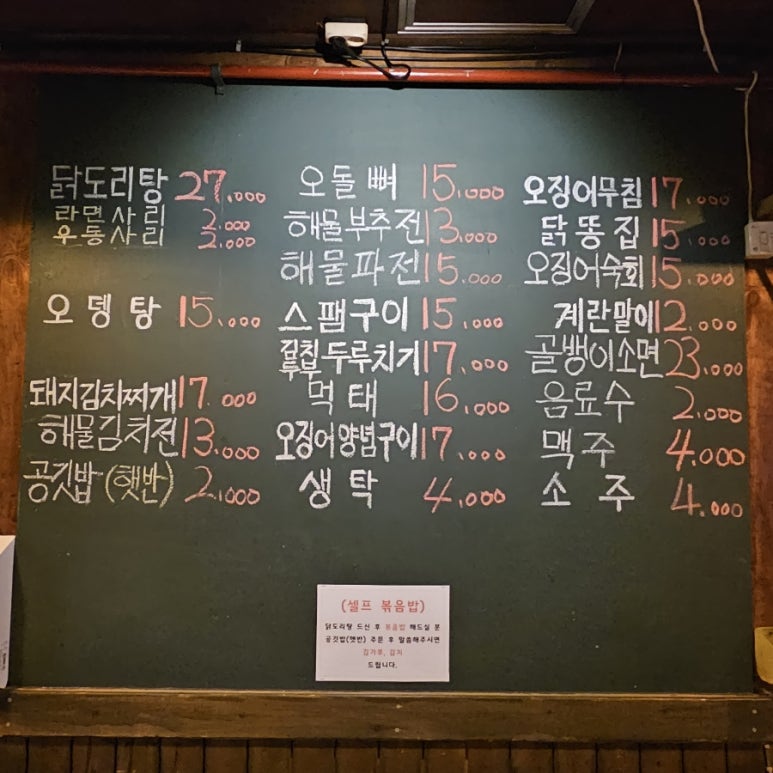 닭도리탕 27.000
라면사리 2.000
우동사리 2.000
오뎅탕 15.000
돼지김치찌개 17.000
해물김치전 13.000
공깃밥 (햇반) 2.000
오돌뼈 15.000
해물부추전 13.000
해물파전 15.000
스팸구이 15.000
김치두부 두루치기 17.000
먹태 16.000
오징어양념구이 17.000
생탁 4.000
오징어무침 17.000
닭똥집 15.000
오징어숙회 15.000
계란말이 12.000
골뱅이소면 23.000
음료수 2.000
맥주 4.000
소주 4.000
(셀프 볶음밥)
닭도리탕 드신 후 볶음밥 해드실 분
공깃밥(햇반) 주문 후 말씀해주시면
김가루, 김치
드립니다.